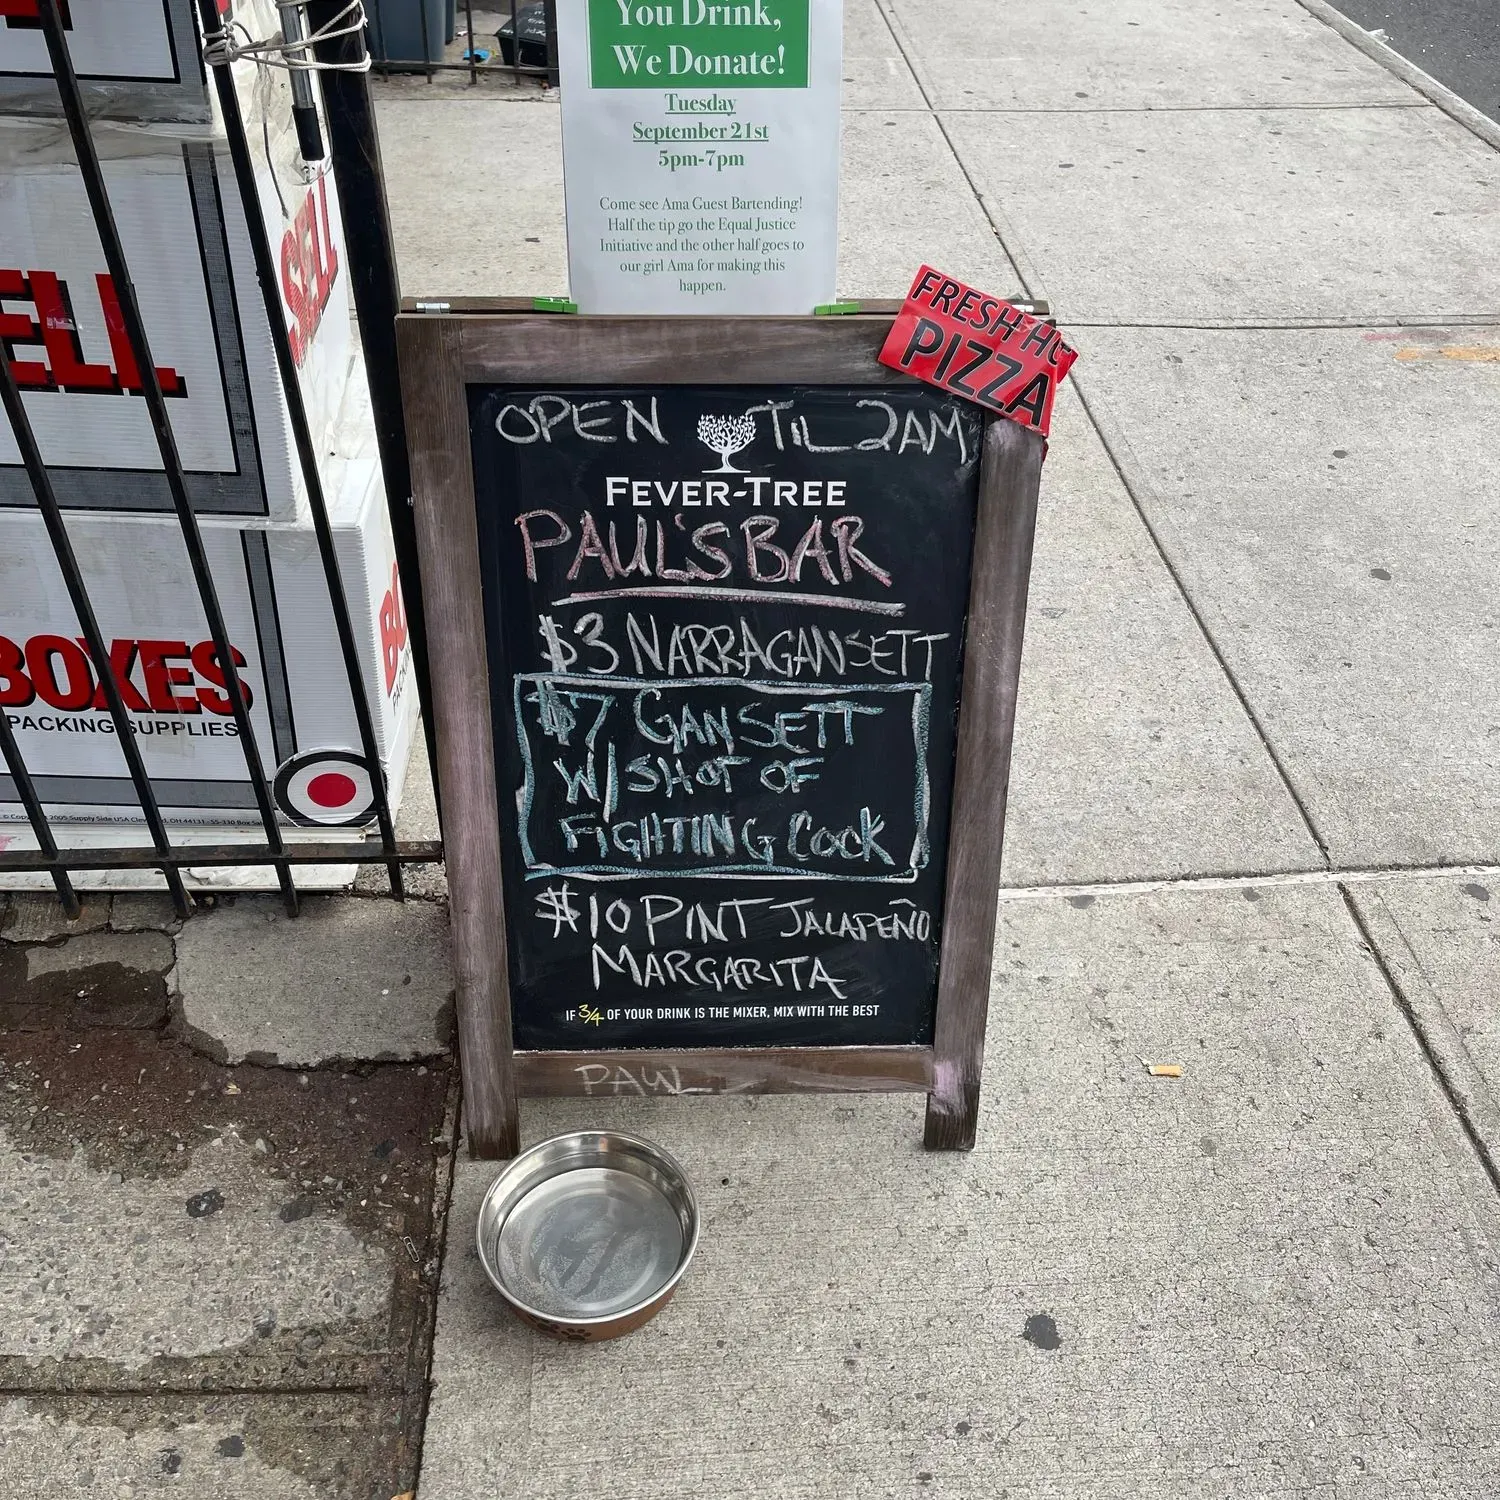 You Drink,
We Donate!
Tuesday
September 21st
5pm-7pm
Come see Ama Guest Bartending!
Half the tip go the Equal Justice
Initiative and the other half goes to
our girl Ama for making this
happen.
FRESH HO
PIZZA
OPEN TIL 2AM
FEVER-TREE
PAUL'S BAR
$3 NARRAGANSETT
$7 GANSETT
W/ SHOT OF
FIGHTING COCK
$10 PINT JALAPEÑO
MARGARITA
IF 3/4 OF YOUR DRINK IS THE MIXER, MIX WITH THE BEST
PAUL
ELL
SELL
BOXES
PACKING SUPPLIES
BO
PACK